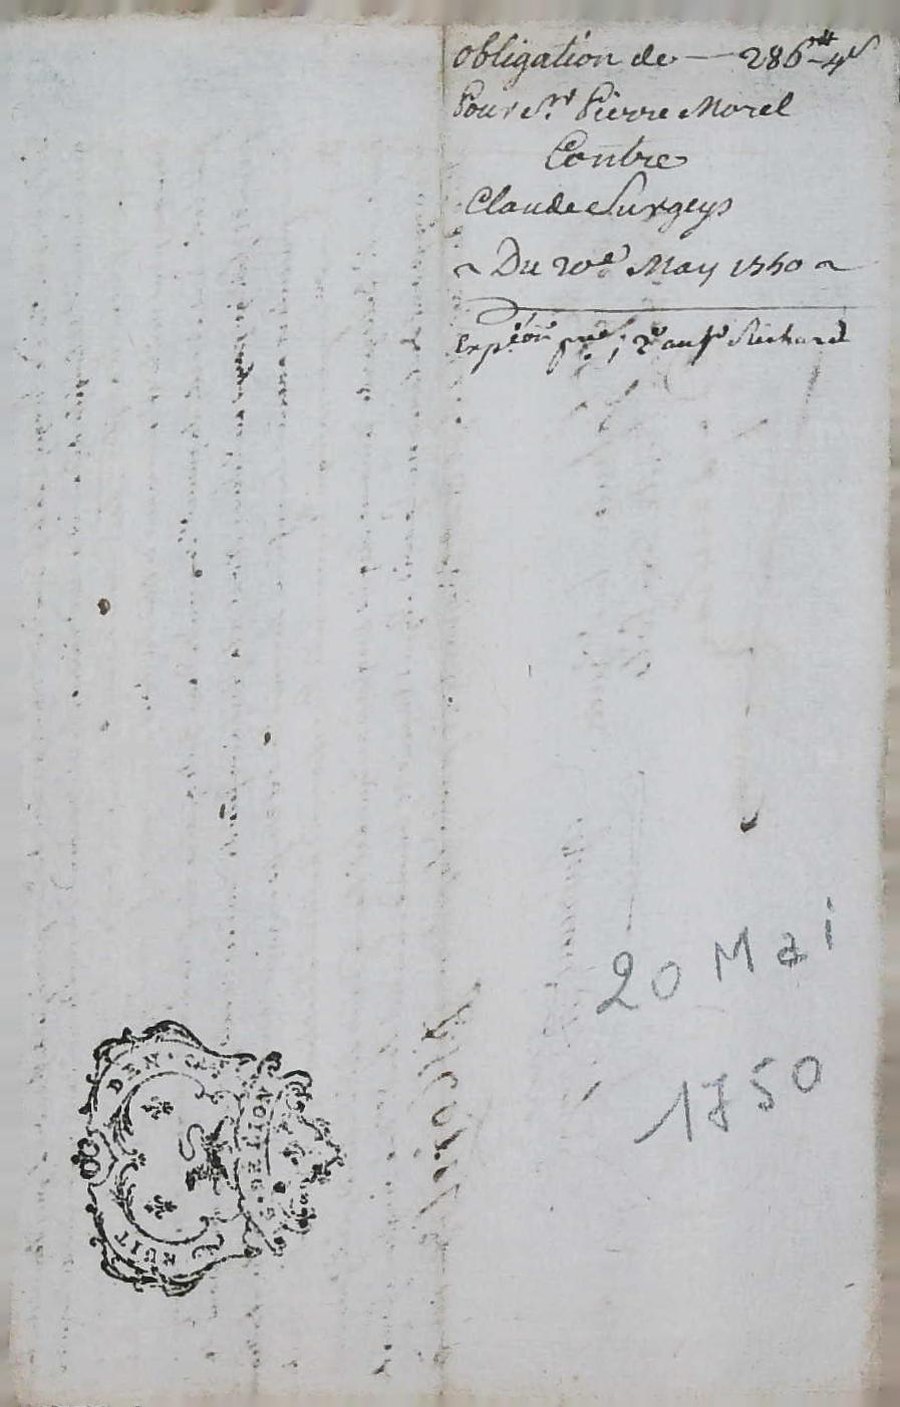 Obligation de — 286# 4s
Pour Sr. Pierre Morel
Contre
Claude Surgeys
~ Du 20e May 1750 ~
Expéion
Richard
20 Mai
1750
G. DE LION
HUIT DEN.